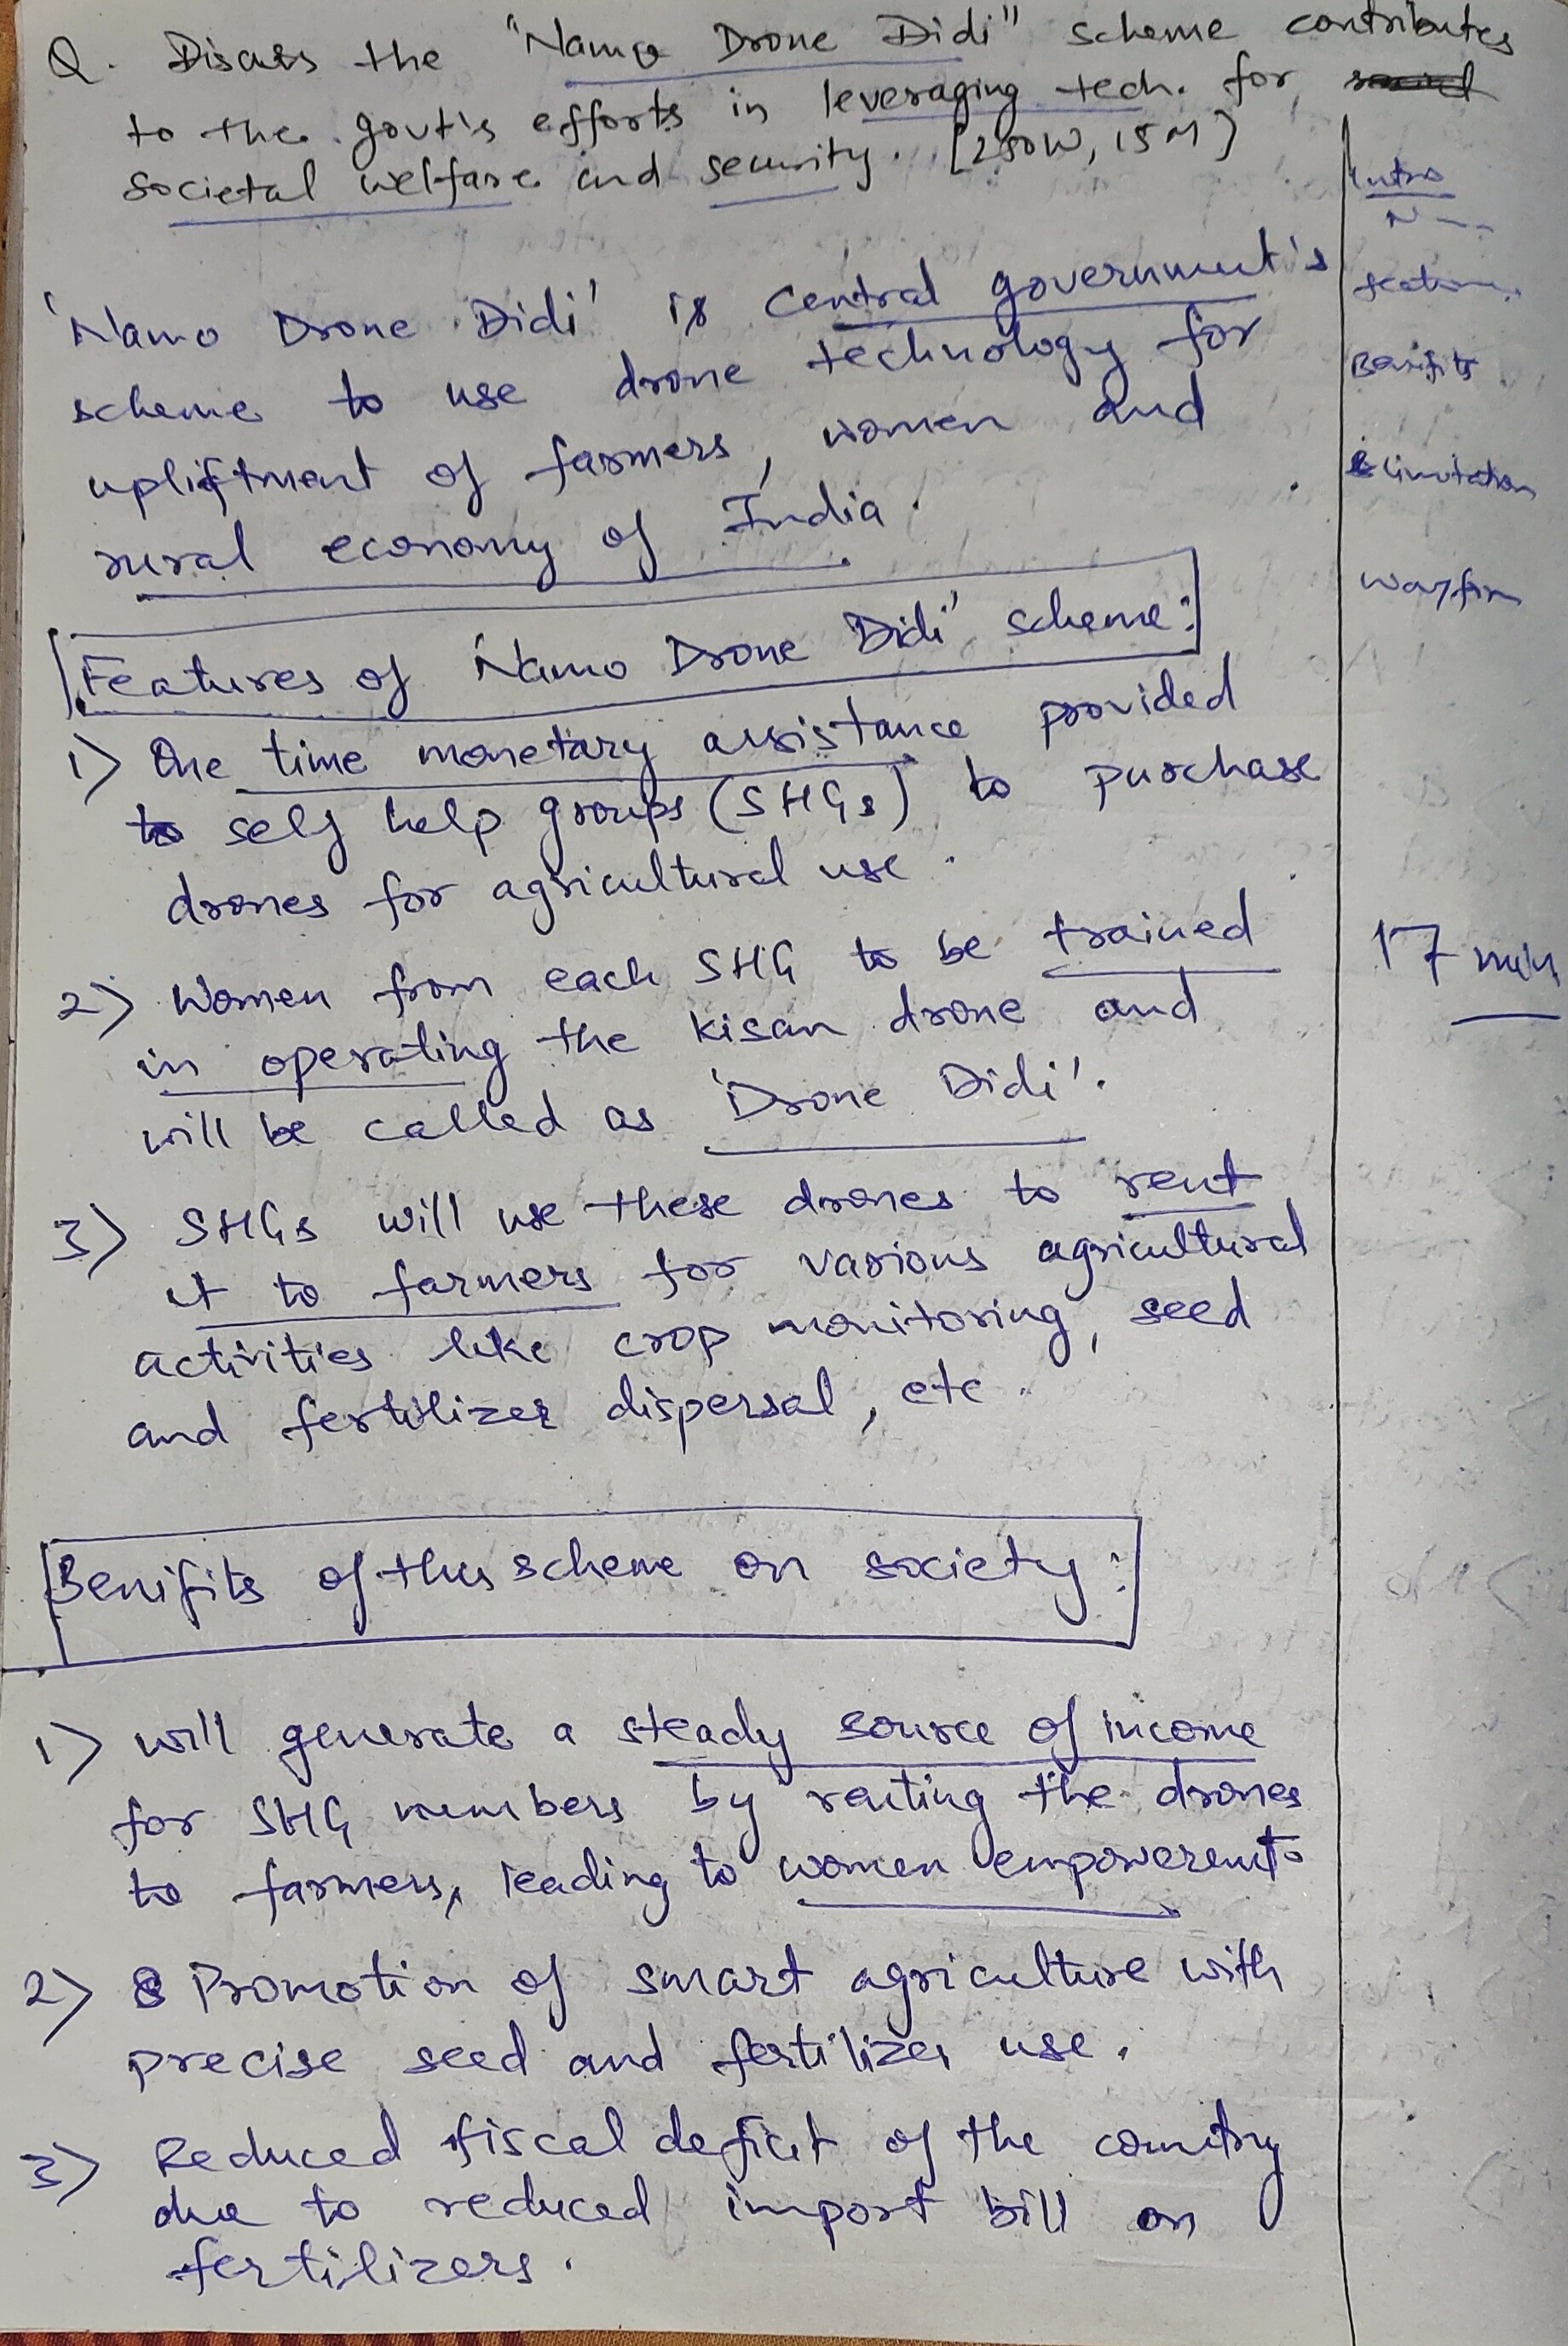 Q. Discuss the "Namo Drone Didi" scheme contributes
to the govt's efforts in leveraging tech. for
societal welfare and security. [250W, 15M]
Intro
N --
Benifits
limitation
17 min
'Namo Drone Didi' is central government's
scheme to use drone technology for
upliftment of farmers, women and
rural economy of India.
Features of 'Namo Drone Didi' scheme:
1) One time monetary assistance provided
to self help groups (SHGs) to purchase
drones for agricultural use.
2) Women from each SHG to be trained
in operating the kisan drone and
will be called as 'Drone Didi'.
3) SHGs will use these drones to rent
it to farmers for various agricultural
activities like crop monitoring, seed
and fertilizer dispersal, etc.
Benifits of this scheme on society:
1) will generate a steady source of income
for SHG members by renting the drones
to farmers, leading to women empowerent.
2) Promotion of smart agriculture with
precise seed and fertilizer use.
3) Reduced fiscal deficit of the country
due to reduced import bill on
fertilizers.